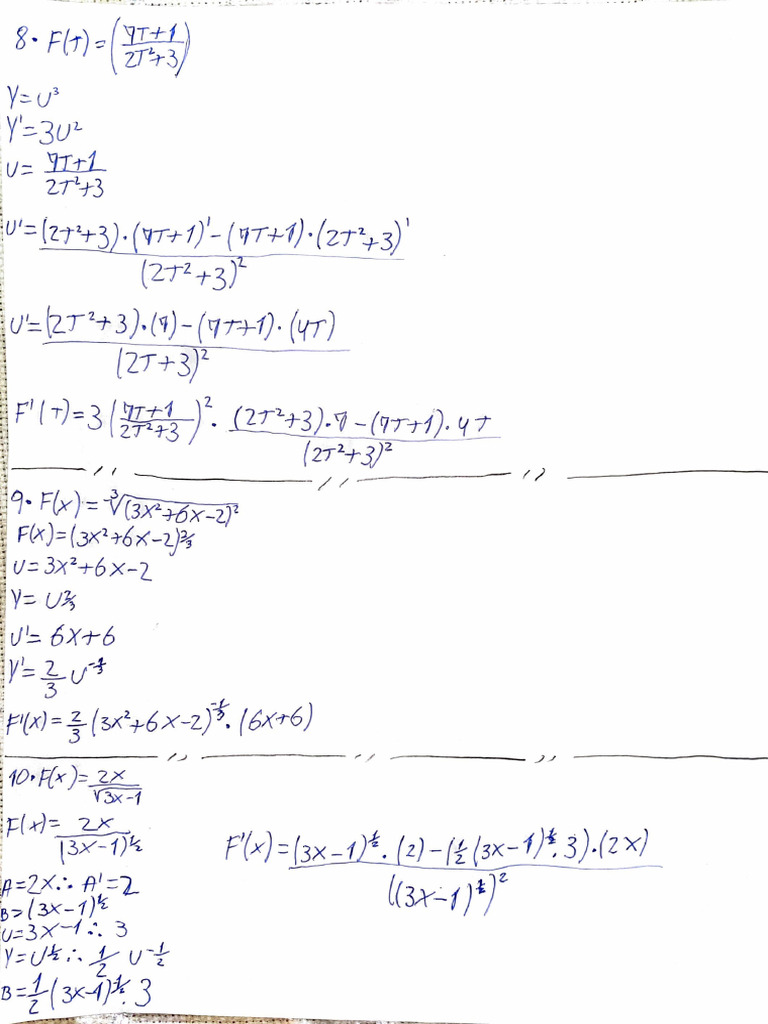 8. F(T) = ((7T+1)/(2T²+3))
Y = U³
Y' = 3U²
U = (7T+1)/(2T²+3)
U' = ((2T²+3)·(7T+1)' - (7T+1)·(2T²+3)')/(2T²+3)²
U' = ((2T²+3)·(7) - (7T+1)·(4T))/(2T+3)²
F'(T) = 3((7T+1)/(2T²+3))² · ((2T²+3)·7 - (7T+1)·4T)/(2T²+3)²
9. F(x) = ³√(3x²+6x-2)²
F(x) = (3x²+6x-2)^2/3
U = 3x²+6x-2
Y = U^2/3
U' = 6x+6
Y' = 2/3 U^-1/3
F'(x) = 2/3 (3x²+6x-2)^-1/3 · (6x+6)
10. F(x) = 2x/√(3x-1)
F(x) = 2x/(3x-1)^1/2
A = 2x ∴ A' = 2
B = (3x-1)^1/2
U = 3x-1 ∴ 3
Y = U^1/2 ∴ 1/2 U^-1/2
B = 1/2 (3x-1)^-1/2 · 3
F'(x) = ((3x-1)^1/2 · (2) - (1/2 (3x-1)^-1/2 · 3)·(2x))/((3x-1)^1/2)²